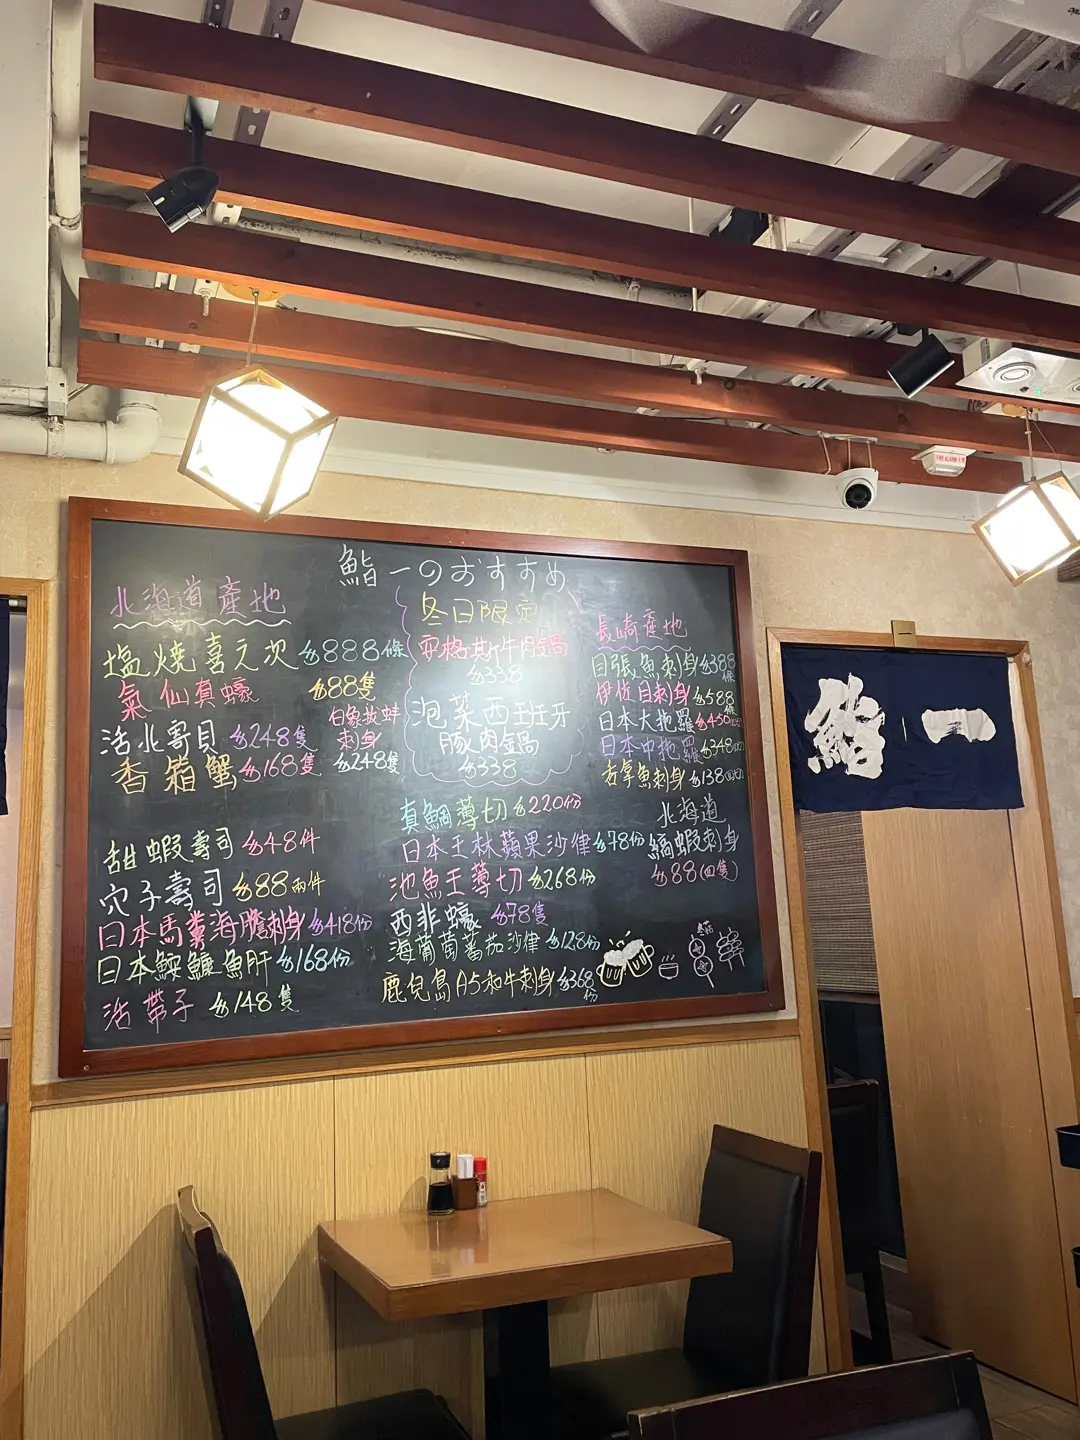 鮨一のおすすめ
北海道產地
塩燒喜之次 $888條
氣仙真蠔 $88隻
活北寄貝 $248隻
香箱蟹 $168隻
白象拔蚌
刺身
$248隻
甜蝦壽司 $48件
穴子壽司 $88兩件
日本馬糞海膽刺身 $418份
日本鮟鱇魚肝 $168份
活帶子 $148隻
冬日限定
安格斯牛肉鍋
$338
泡菜西班牙
豚肉鍋
$338
真鯛薄切 $220份
日本王林蘋果沙律 $78份
池魚王薄切 $268份
西非蠔 $78隻
海葡萄蕃茄沙律 $128份
鹿兒島A5和牛刺身 $368份
長崎產地
目張魚刺身 $388條
伊佐目刺身 $588條
日本大拖羅 $450
日本中拖羅 $348
吉拿魚刺身 $138
北海道
縞蝦刺身
$88(四隻)
鮨一